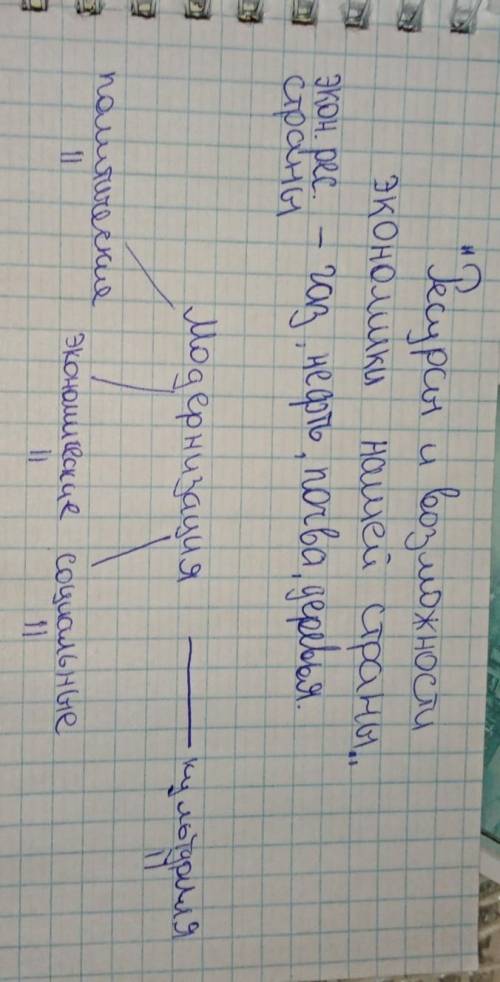 "Ресурсы и возможности
экономики нашей страны"
экон. рес. – газ, нефть, почва, деревья.
страны
Модернизация — культурная
политические
экономические
социальные